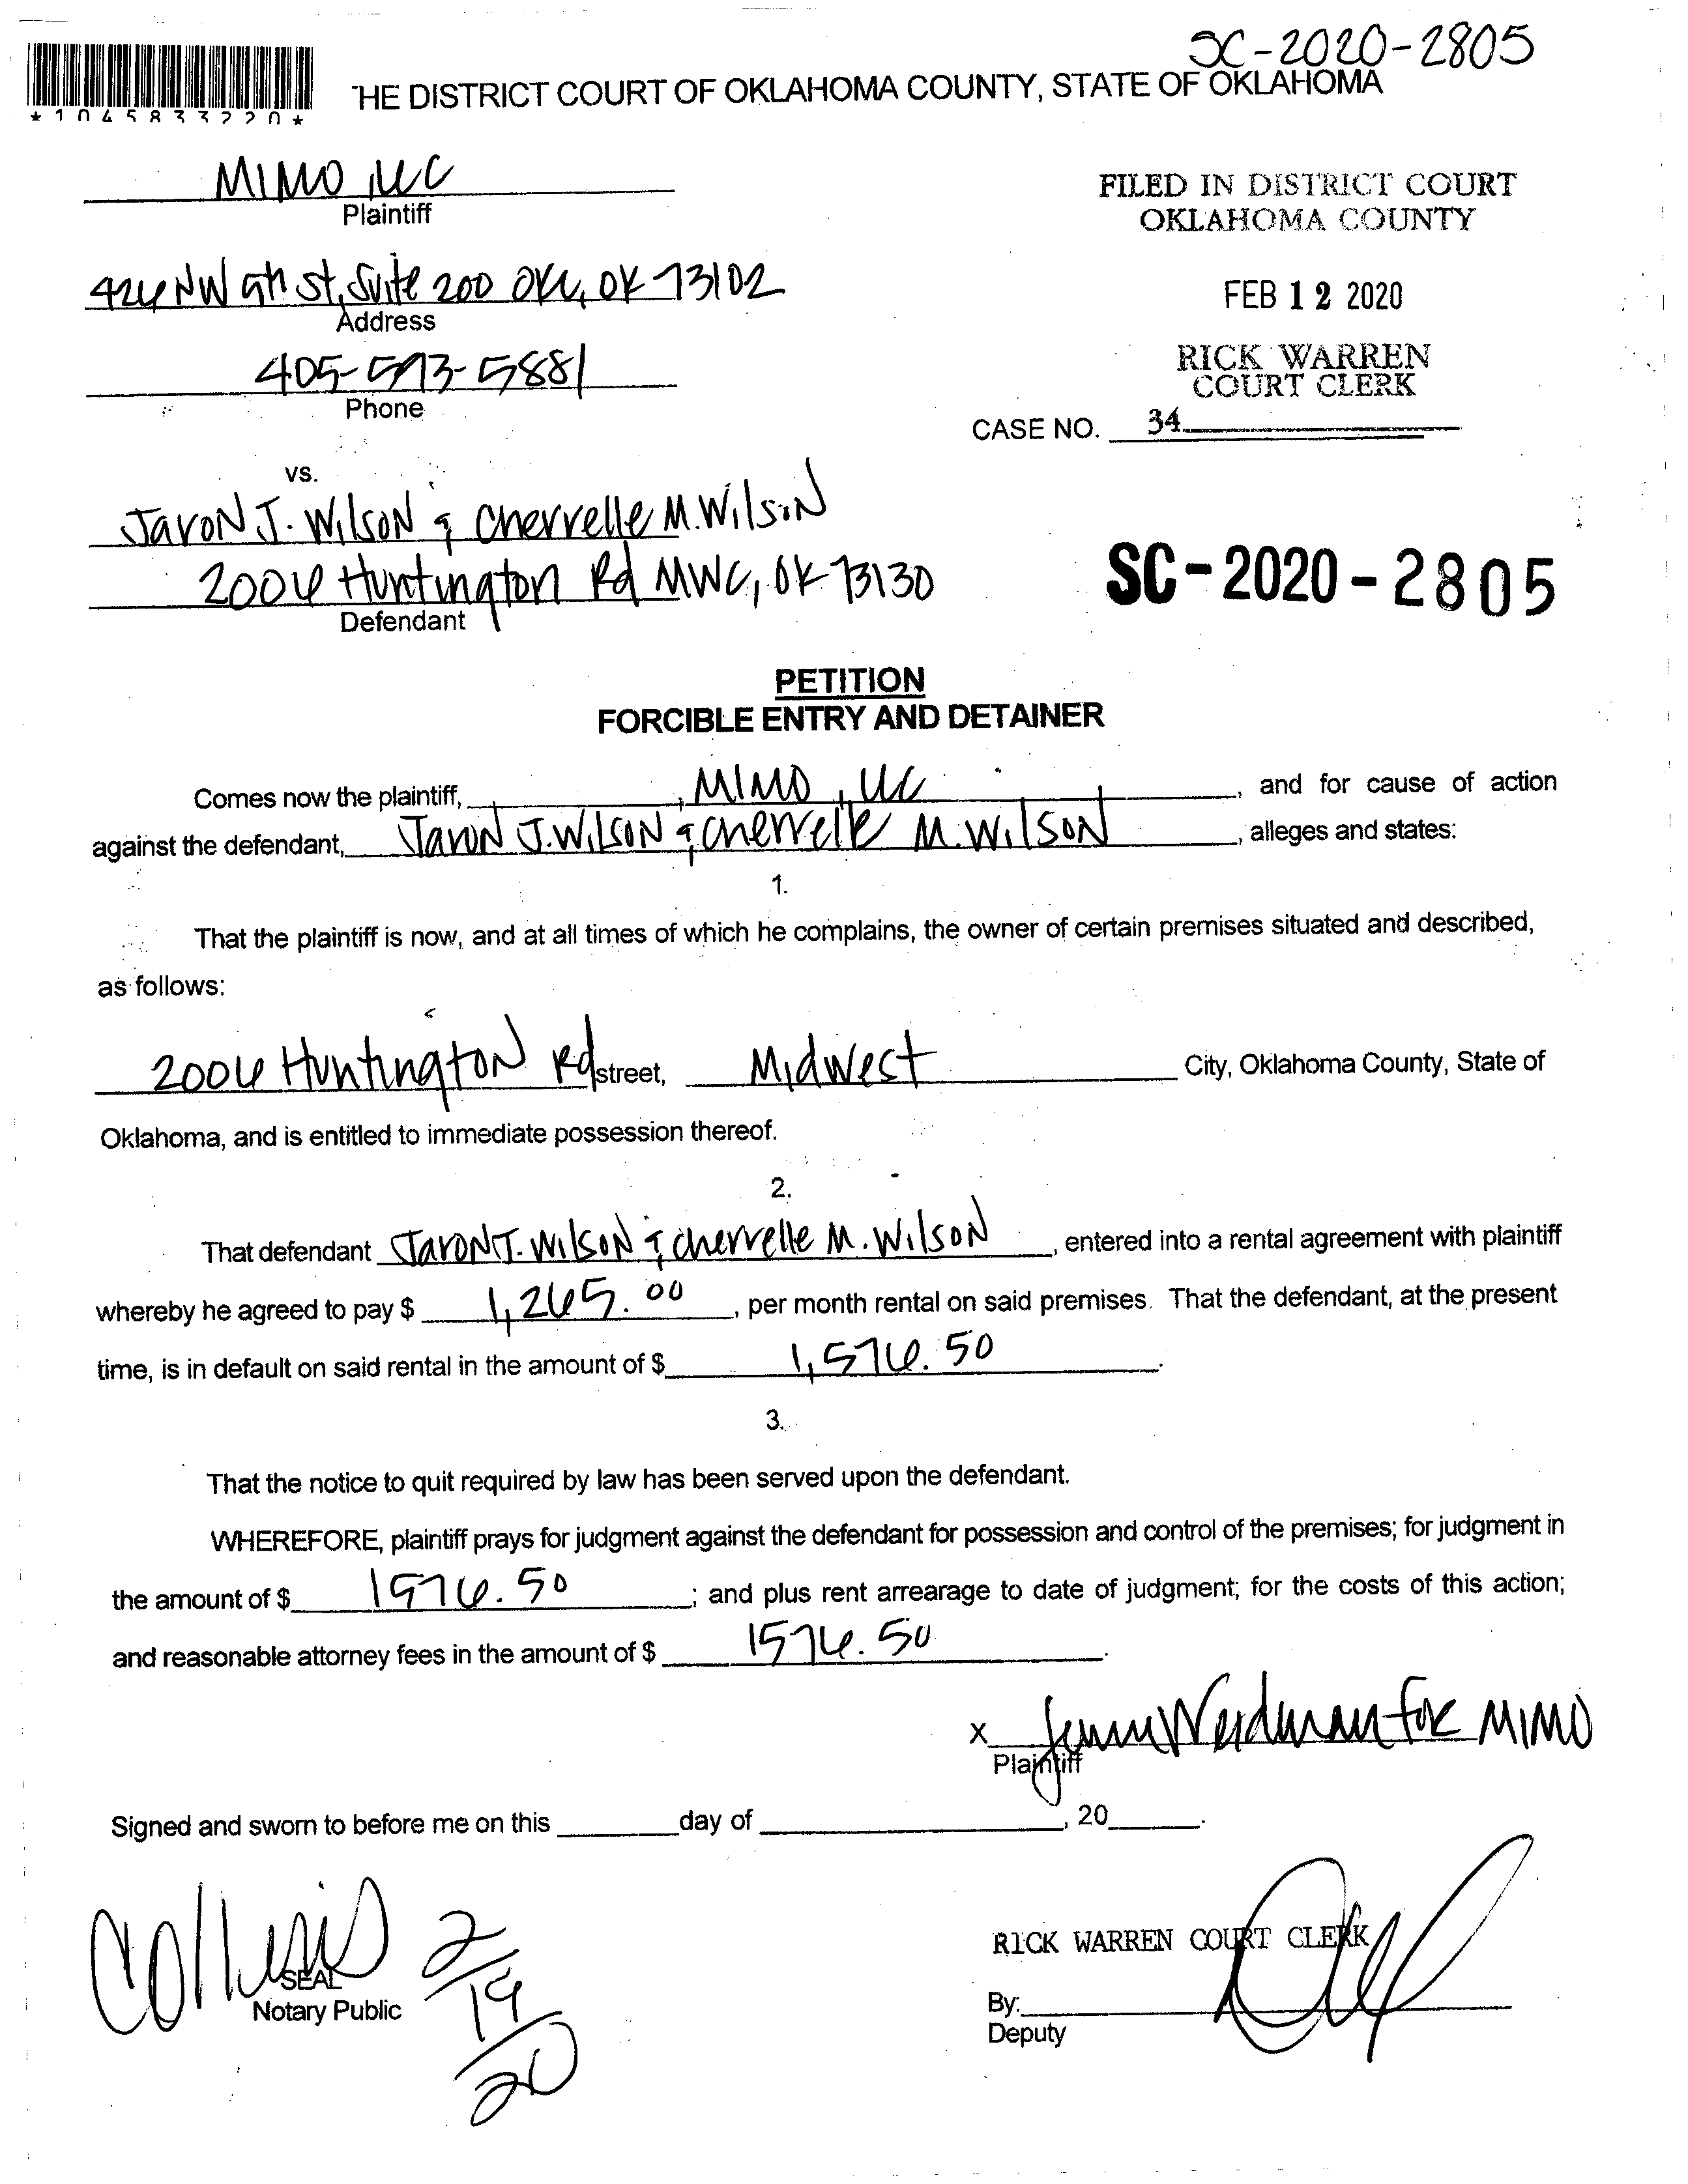 SC-2020-2805
THE DISTRICT COURT OF OKLAHOMA COUNTY, STATE OF OKLAHOMA
*1045833220*
MIMO, LLC
Plaintiff
FILED IN DISTRICT COURT
OKLAHOMA COUNTY
426 NW 5th St, Suite 200 OKC, OK 73102
Address
FEB 12 2020
405-593-5881
Phone
RICK WARREN
COURT CLERK
CASE NO. 34
vs.
Jaron J. Wilson & Cherrelle M. Wilson
2006 Huntington Rd MWC, OK 73130
Defendant
SC-2020-2805
PETITION
FORCIBLE ENTRY AND DETAINER
Comes now the plaintiff, MIMO, LLC, and for cause of action
against the defendant, Jaron J. Wilson & Cherrelle M. Wilson, alleges and states:
1.
That the plaintiff is now, and at all times of which he complains, the owner of certain premises situated and described,
as follows:
2006 Huntington Rd street, Midwest City, Oklahoma County, State of
Oklahoma, and is entitled to immediate possession thereof.
2.
That defendant Jaron J. Wilson & Cherrelle M. Wilson, entered into a rental agreement with plaintiff
whereby he agreed to pay $ 1,265.00, per month rental on said premises. That the defendant, at the present
time, is in default on said rental in the amount of $ 1,576.50.
3.
That the notice to quit required by law has been served upon the defendant.
WHEREFORE, plaintiff prays for judgment against the defendant for possession and control of the premises; for judgment in
the amount of $ 1576.50; and plus rent arrearage to date of judgment; for the costs of this action;
and reasonable attorney fees in the amount of $ 1576.50.
X Jenny Weidman for MIMO
Plaintiff
Signed and sworn to before me on this day of , 20 .
2/19/20
SEAL
Notary Public
RICK WARREN COURT CLERK
By:
Deputy